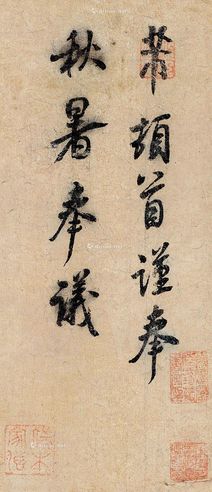 芾頓首謹奉
秋暑奉議